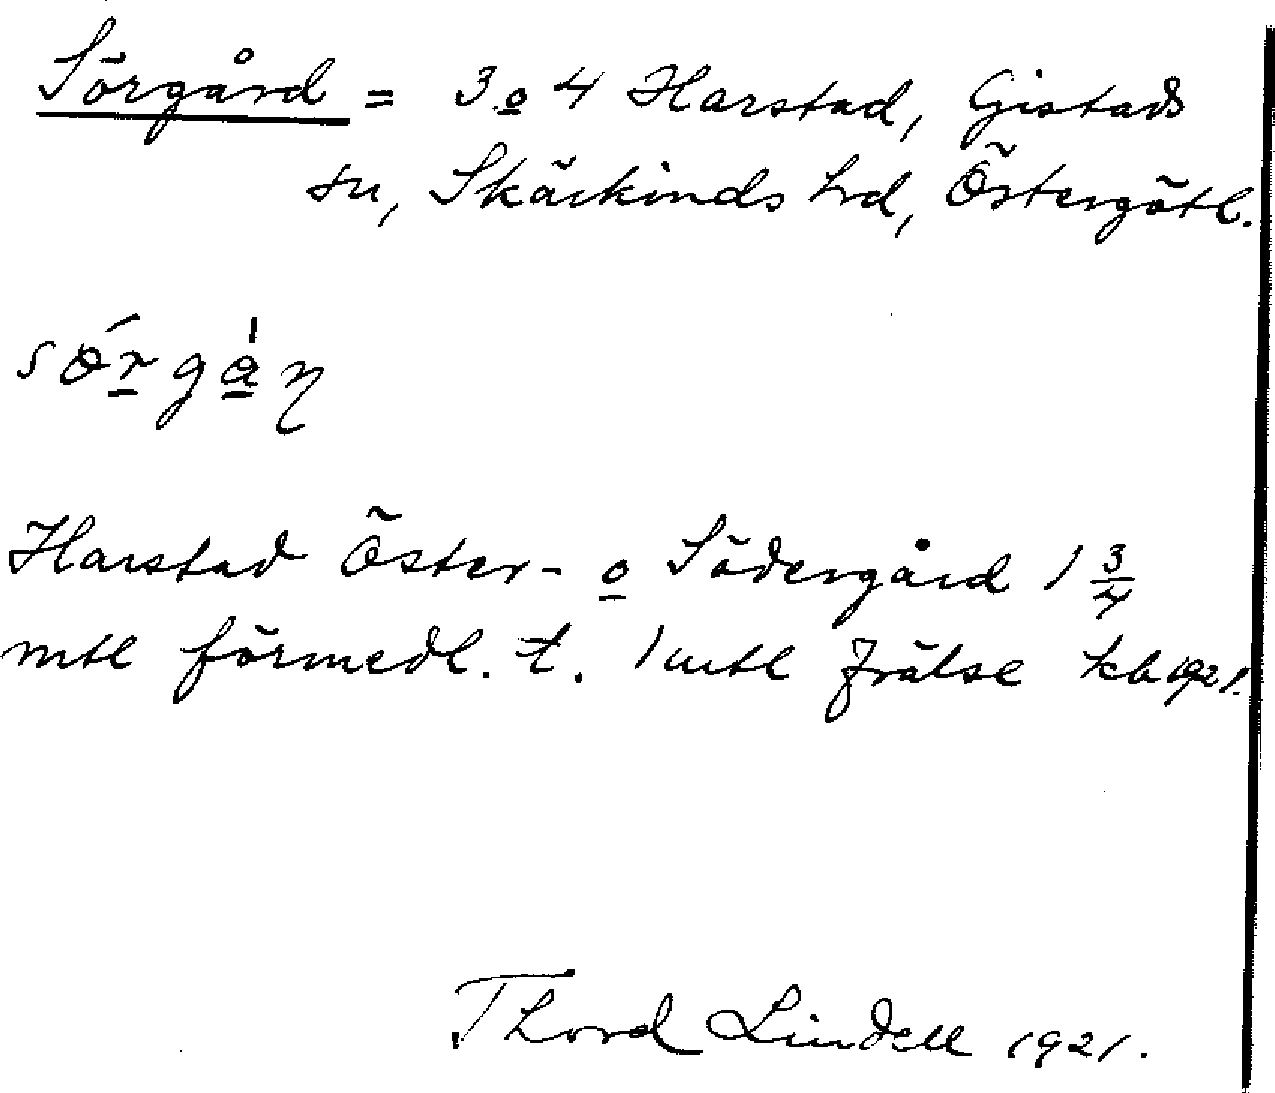 Sörgård = 3 o 4 Harstad, Gistads
sn, Skärkinds hrd, Östergötl.
Harstad Öster- o Södergård 1 3/4
mtl förmedl. t. 1 mtl frälse kb 1921.
Thord Lindell 1921.